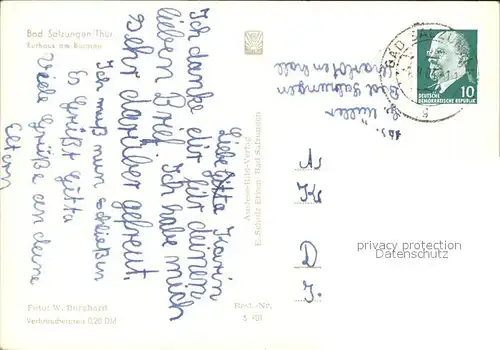 Bad Salzungen-Thür.
Kurhaus am Burgsee
Liebe Jutta Karin
Ich danke dir für deinen
lieben Brief. Ich habe mich
sehr darüber gefreut.
Ich muß nun schließen
Es Grüßt Jutta
Viele Grüße an deine
Eltern
Foto: W. Burghardt
Verbraucherpreis 0,20 DM
Auslese-Bild-Verlag
Bad Salzungen
Best.-Nr.
Abs.
Müller
Bad Salzungen
BAD SALZUNGEN
DEUTSCHE
DEMOKRATISCHE REPUBLIK
10
As
K
D
J.
privacy protection
Datenschutz